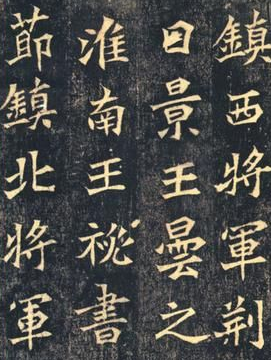 鎮西將軍荆
日景王曇之
淮南王祕書
莭鎮北將軍